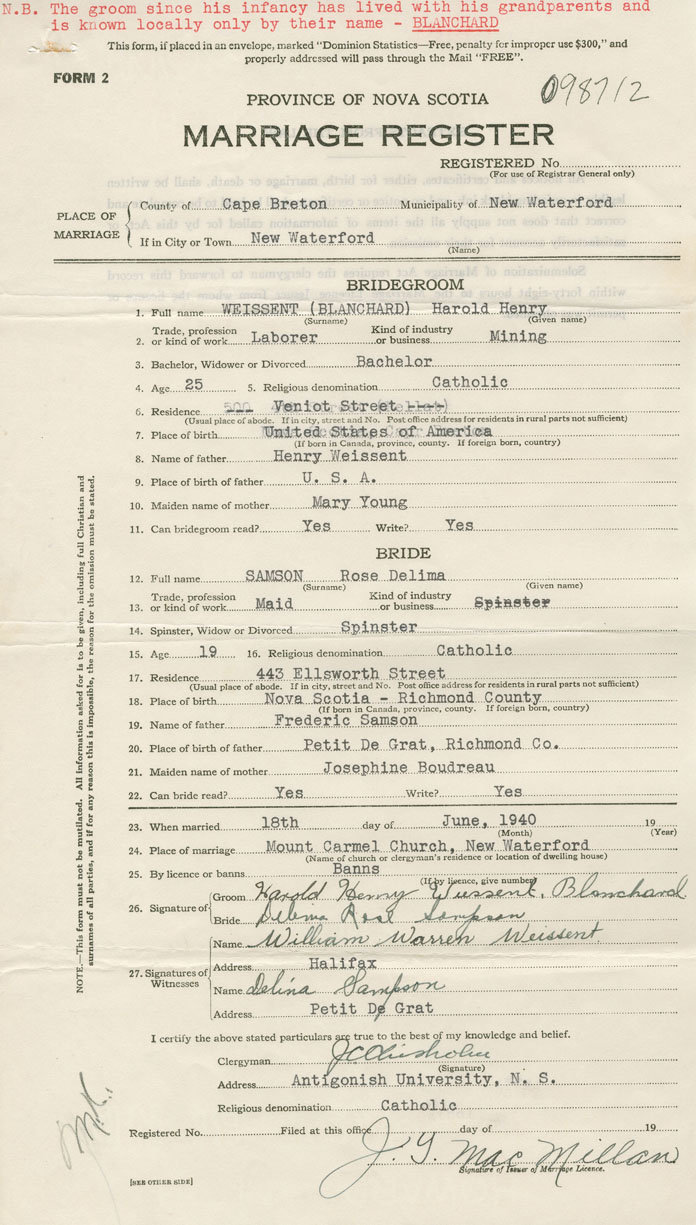 N.B. The groom since his infancy has lived with his grandparents and
is known locally only by their name - BLANCHARD
This form, if placed in an envelope, marked "Dominion Statistics—Free, penalty for improper use $300," and
properly addressed will pass through the Mail "FREE".
FORM 2
098712
PROVINCE OF NOVA SCOTIA
MARRIAGE REGISTER
REGISTERED No.
(For use of Registrar General only)
PLACE OF MARRIAGE
County of Cape Breton Municipality of New Waterford
If in City or Town New Waterford
(Name)
BRIDEGROOM
1. Full name WEISSENT (BLANCHARD) Harold Henry
(Surname) (Given name)
2. Trade, profession or kind of work Laborer Kind of industry or business Mining
3. Bachelor, Widower or Divorced Bachelor
4. Age 25 5. Religious denomination Catholic
6. Residence Veniot Street
(Usual place of abode. If in city, street and No. Post office address for residents in rural parts not sufficient)
7. Place of birth United States of America
(If born in Canada, province, county. If foreign born, country)
8. Name of father Henry Weissent
9. Place of birth of father U. S. A.
10. Maiden name of mother Mary Young
11. Can bridegroom read? Yes Write? Yes
BRIDE
12. Full name SAMSON Rose Delima
(Surname) (Given name)
13. Trade, profession or kind of work Maid Kind of industry or business Spinster
14. Spinster, Widow or Divorced Spinster
15. Age 19 16. Religious denomination Catholic
17. Residence 443 Ellsworth Street
(Usual place of abode. If in city, street and No. Post office address for residents in rural parts not sufficient)
18. Place of birth Nova Scotia - Richmond County
(If born in Canada, province, county. If foreign born, country)
19. Name of father Frederic Samson
20. Place of birth of father Petit De Grat, Richmond Co.
21. Maiden name of mother Josephine Boudreau
22. Can bride read? Yes Write? Yes
23. When married 18th day of June, 1940 19
(Month) (Year)
24. Place of marriage Mount Carmel Church, New Waterford
(Name of church or clergyman's residence or location of dwelling house)
25. By licence or banns Banns
(If by licence, give number)
26. Signature of
Groom Harold Henry Weissent, Blanchard
Bride Delima Rose Sampson
27. Signatures of Witnesses
Name William Warren Weissent
Address Halifax
Name Delina Sampson
Address Petit De Grat
I certify the above stated particulars are true to the best of my knowledge and belief.
Clergyman J C Chisholm
(Signature)
Address Antigonish University, N. S.
Religious denomination Catholic
Registered No. Filed at this office day of 19
J. Y. Mac Millan
Signature of Issuer of Marriage Licence.
[SEE OTHER SIDE]
NOTE.—This form must not be mutilated. All information asked for is to be given, including full Christian and
surnames of all parties, and if for any reason this is impossible, the reason for the omission must be stated.